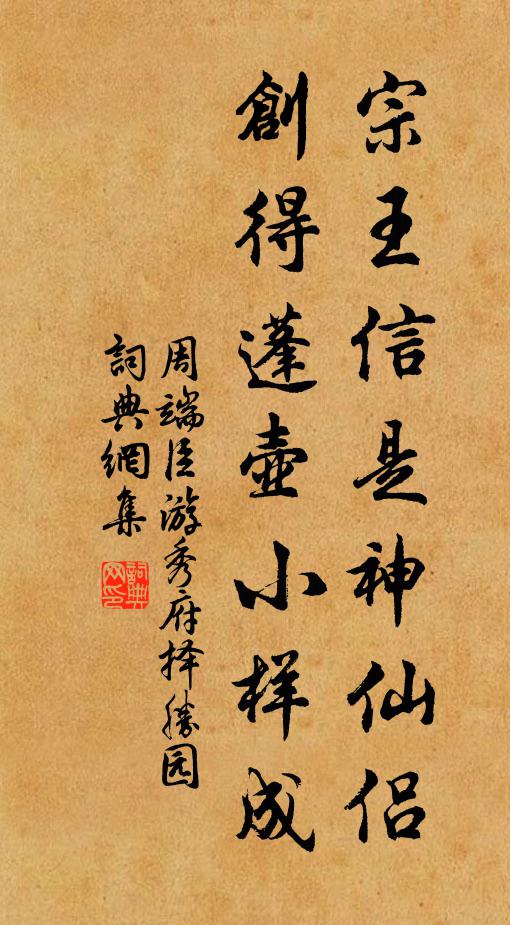 宗王信是神仙侣
創得蓬壺小样成
周端臣游秀府择勝园
詞典網集
詞典网印